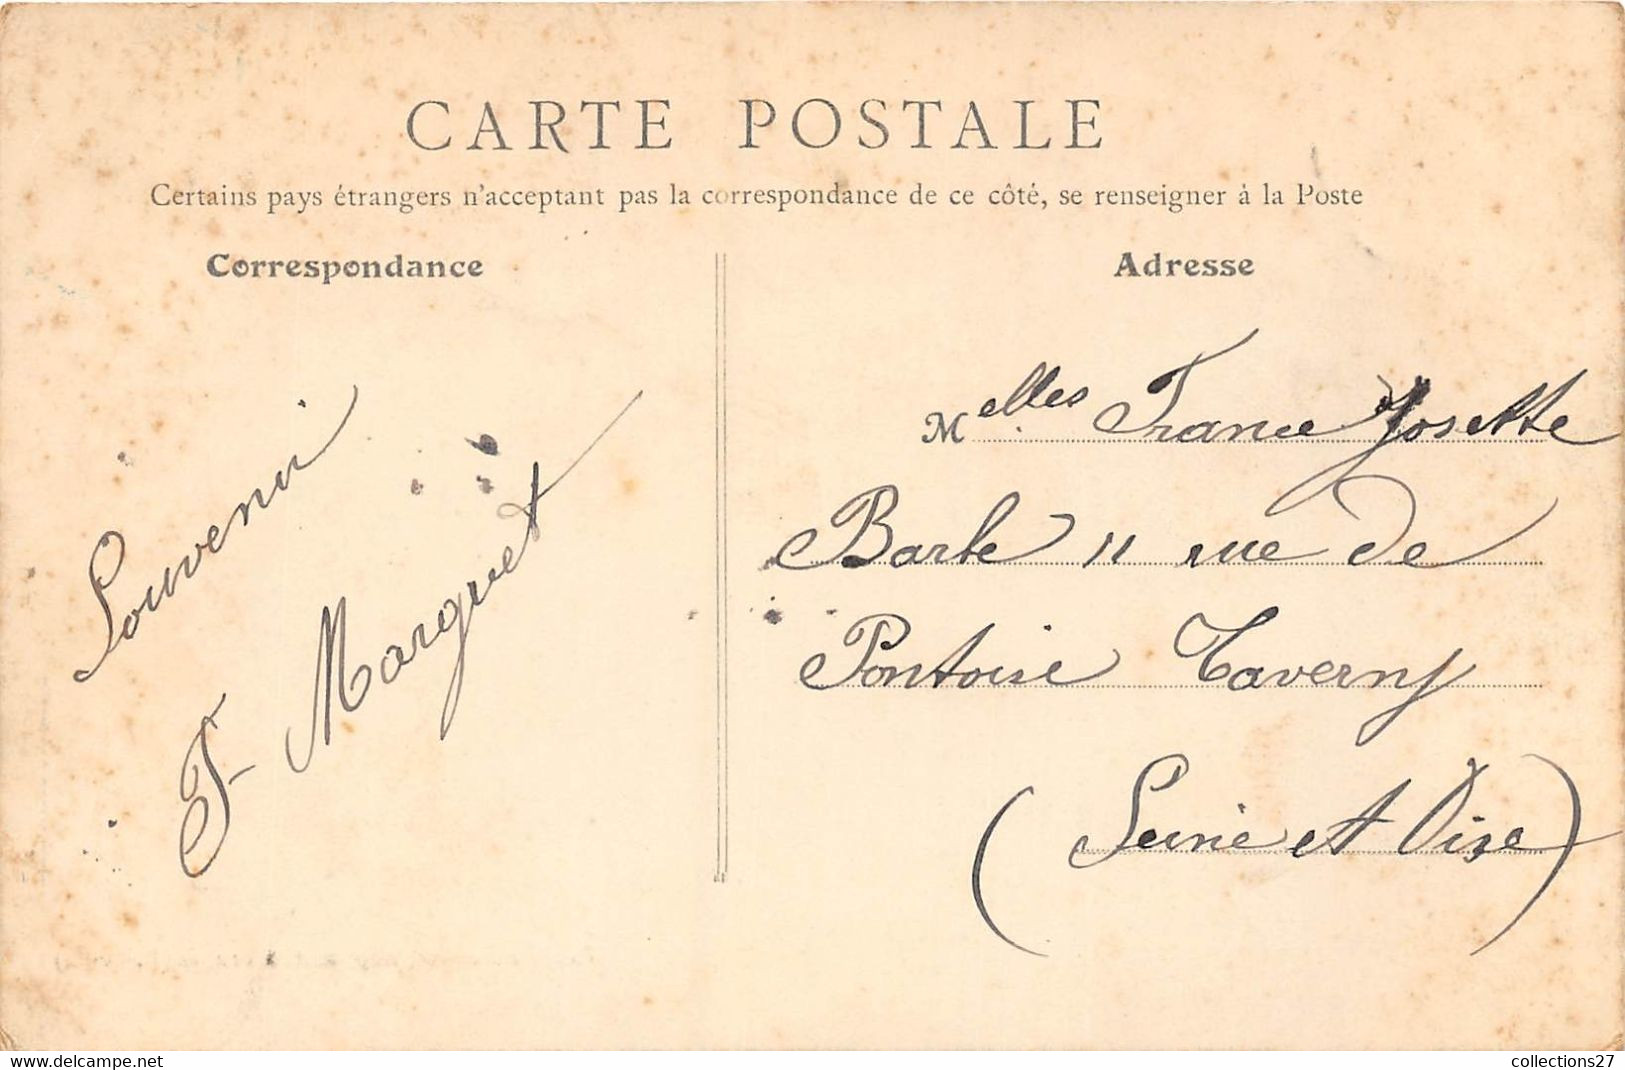 CARTE POSTALE
Certains pays étrangers n'acceptant pas la correspondance de ce côté, se renseigner à la Poste
Correspondance
Souvenir
F. Marquet
Adresse
Melles France Josette
Barle 11 rue de
Pontoise Taverny
(Seine et Oise)
https://www.delcampe.net
collections27